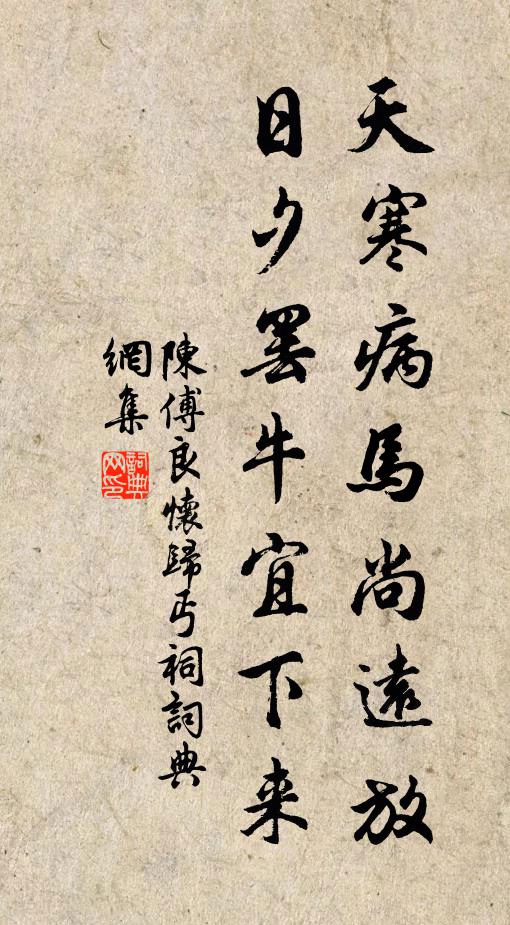 天寒病馬尚遠放
日夕罢牛宜下来
陳傅良懷歸丐祠詞典
網集
詞典网印